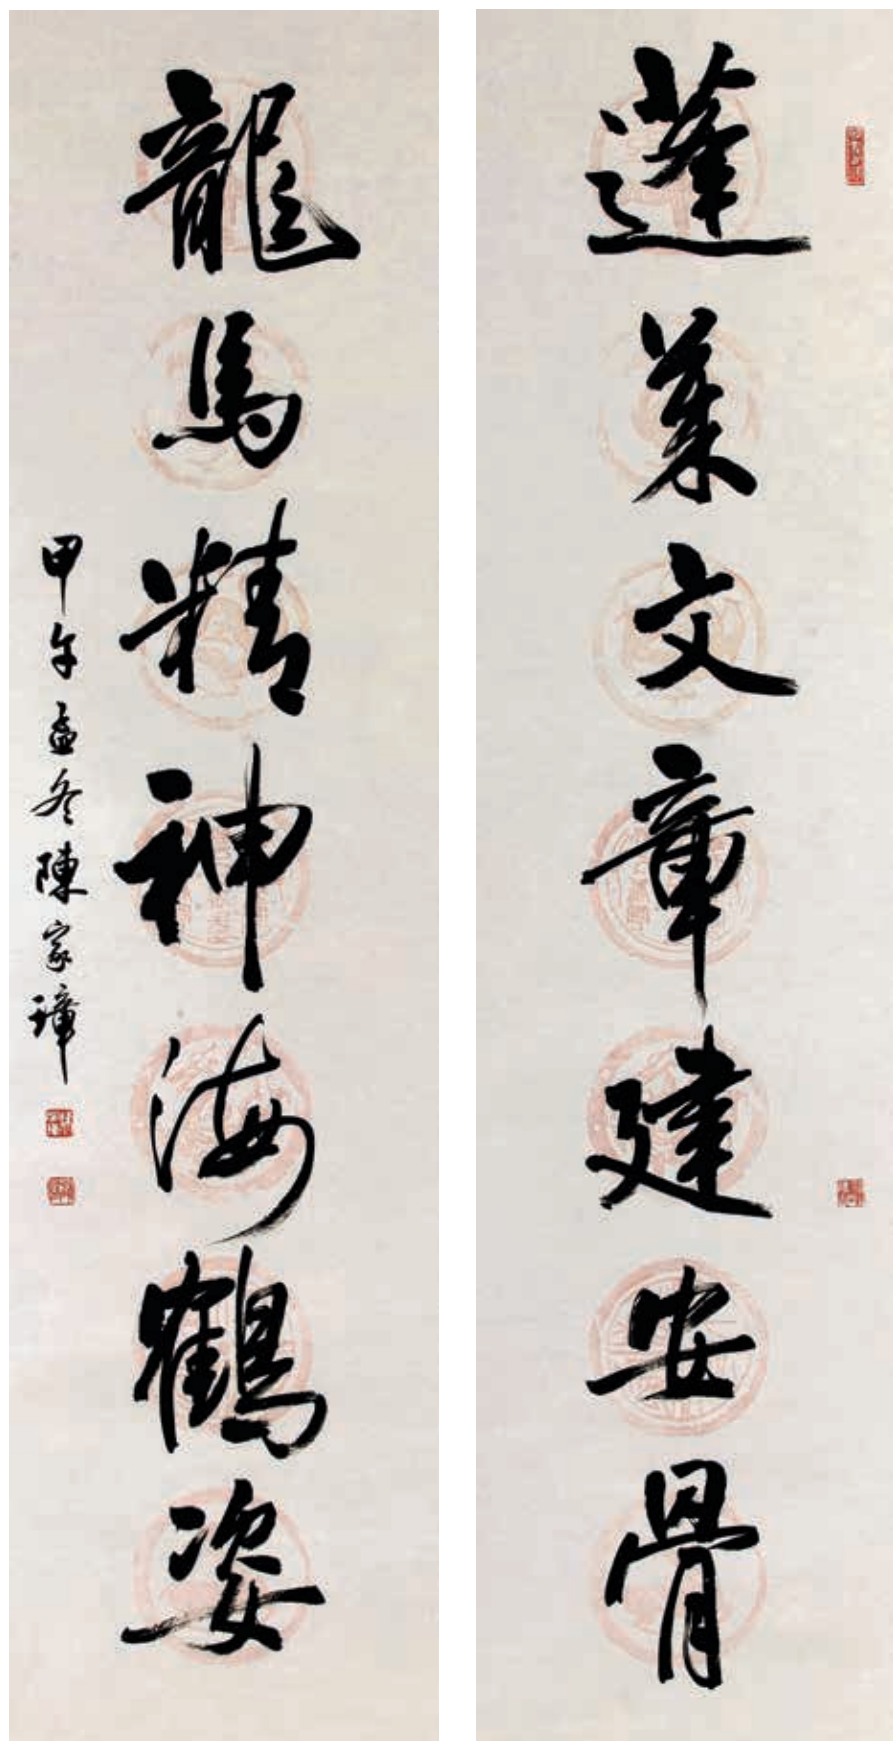 蓬萊文章建安骨
龍馬精神海鶴姿
甲午孟冬陳家璋